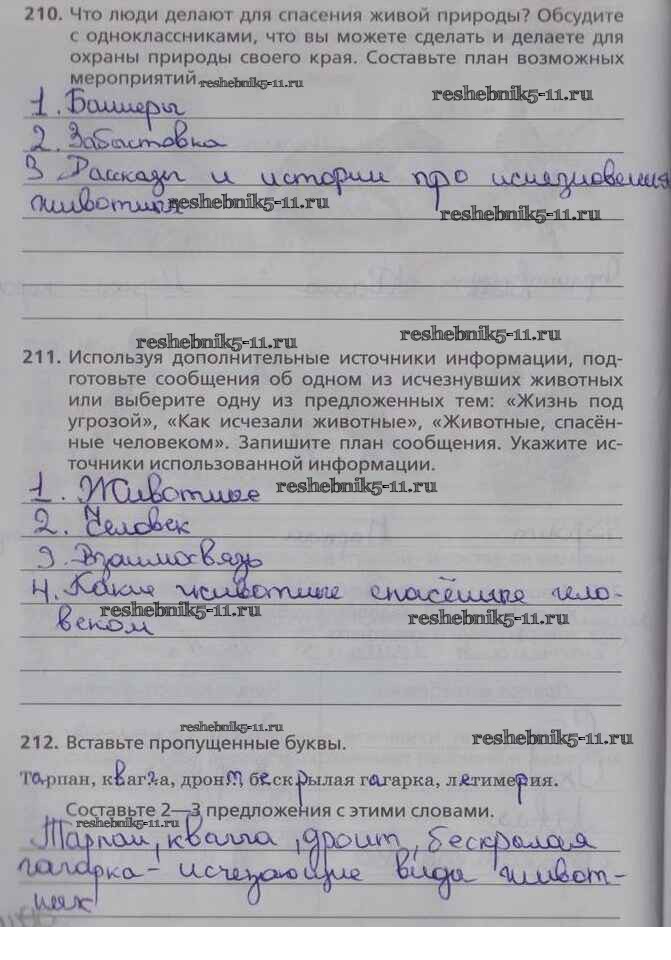 210. Что люди делают для спасения живой природы? Обсудите
с одноклассниками, что вы можете сделать и делаете для
охраны природы своего края. Составьте план возможных
мероприятий. reshebnik5-11.ru
reshebnik5-11.ru
1. Баннеры
2. Забастовка
3 Рассказы и истории про исчезновения
животных reshebnik5-11.ru
reshebnik5-11.ru
reshebnik5-11.ru reshebnik5-11.ru
211. Используя дополнительные источники информации, под-
готовьте сообщения об одном из исчезнувших животных
или выберите одну из предложенных тем: «Жизнь под
угрозой», «Как исчезали животные», «Животные, спасён-
ные человеком». Запишите план сообщения. Укажите ис-
точники использованной информации.
1. Животные reshebnik5-11.ru
2. Человек
3. Взаимосвязь
4. Какие животные спасённые чело-
reshebnik5-11.ru reshebnik5-11.ru
веком
reshebnik5-11.ru
212. Вставьте пропущенные буквы. reshebnik5-11.ru
Тарпан, квагга, дронт, бескрылая гагарка, летимерия.
Составьте 2—3 предложения с этими словами.
reshebnik5-11.ru
Тарпан, квагга, дронт, бескрылая
гагарка - исчезающие вида живот-
ных